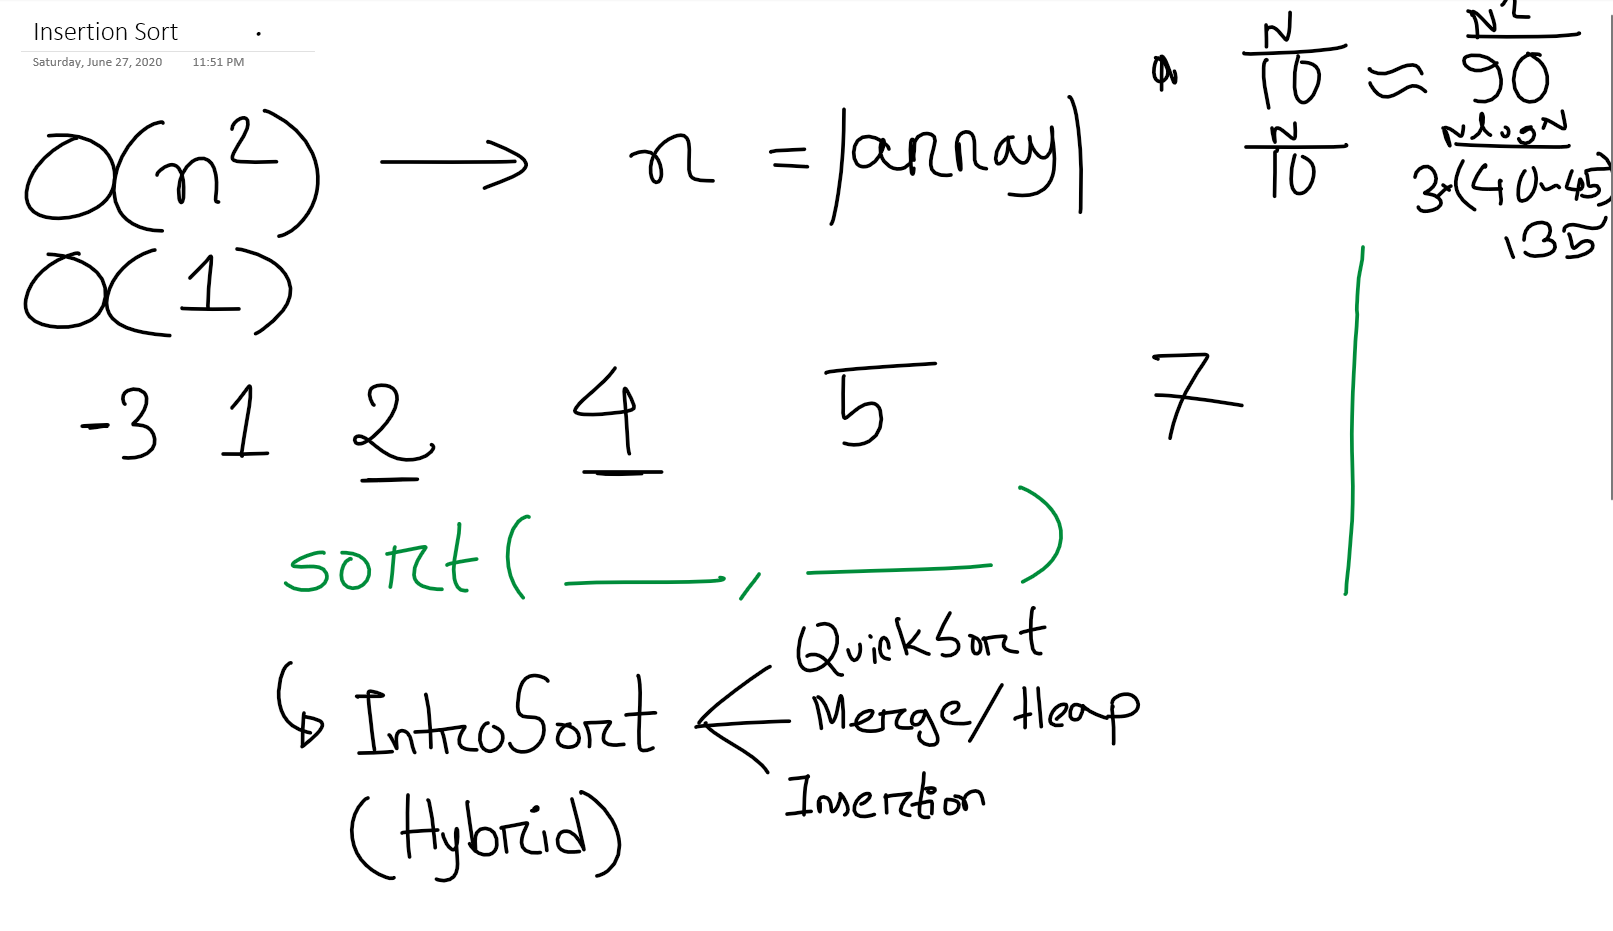 Insertion Sort
Saturday, June 27, 2020 11:51 PM
O(n²) → n = |array|
O(1)
N/10 ≈ N²/90
N/10 NlogN/3×(40~45)
135
-3 1 2 4 5 7
sort( ___, ___ )
↳ IntroSort < QuickSort
Merge/Heap
Insertion
(Hybrid)